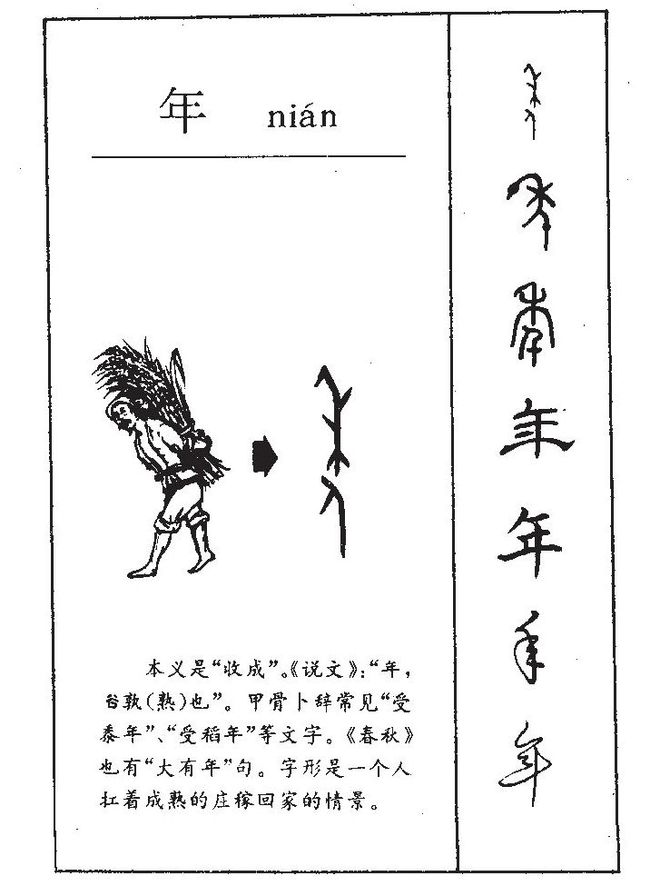 年 nián
本义是“收成”。《说文》：“年，
谷孰（熟）也”。甲骨卜辞常见“受
黍年”、“受稻年”等文字。《春秋》
也有“大有年”句。字形是一个人
扛着成熟的庄稼回家的情景。
年
年
年
年
年
年
年